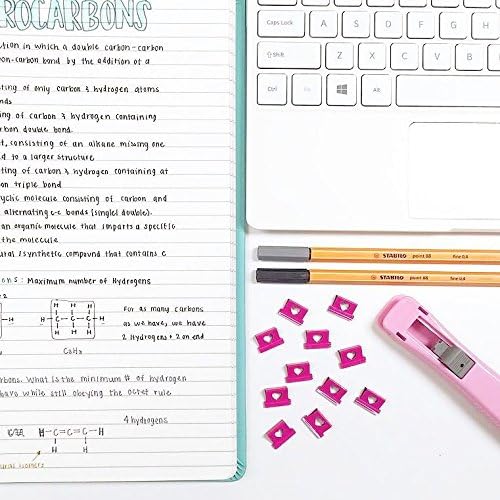 ROCARBONS
ction in which a double carbon-carbon
on-carbon bond by the addition of a
ting of only carbon & hydrogen atoms
nds
ing of carbon & hydrogen containing
rbon double bond.
t, consisting of an alkane missing one
d to a larger structure
ting of carbon & hydrogen containing at
on triple bond
cyclic molecule consisting of carbon and
alternating c-c bonds (single/double).
an organic molecule that imparts a specific
the molecule
ural/synthetic compound that contains c
ons: Maximum number of Hydrogens
H H H
H-C-C-C-H
H H H
C3H8
For as many carbons
as we have, we have
2 Hydrogens + 2 on end
rbons. What is the minimum # of hydrogen
have while still obeying the octet rule
4 hydrogens
H-C=C=C-H
H H
ural isomers
Caps Lock
A
S
D
F
G
H
Shift
Z
X
C
V
B
Ctrl
Fn
Alt
STABILO point 88 fine 0,4
STABILO point 88 fine 0,4